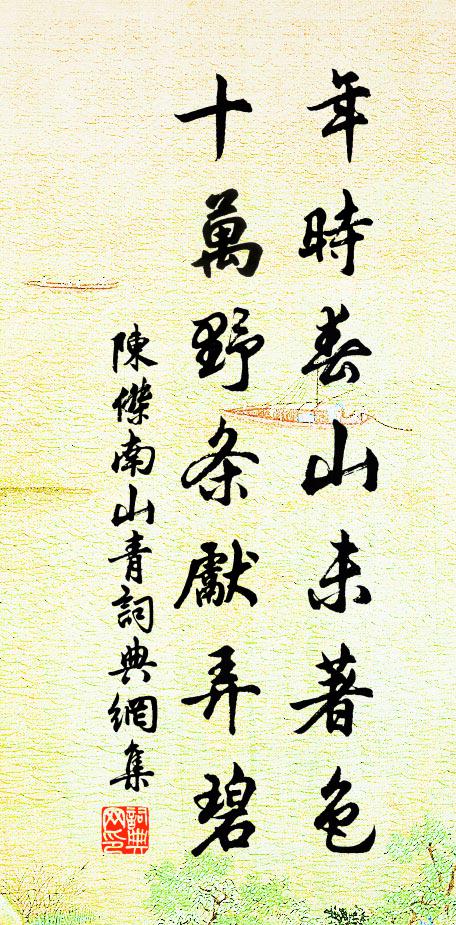 年時春山未著色
十萬野条獻弄碧
陳傑南山青詞典網集
詞典网印